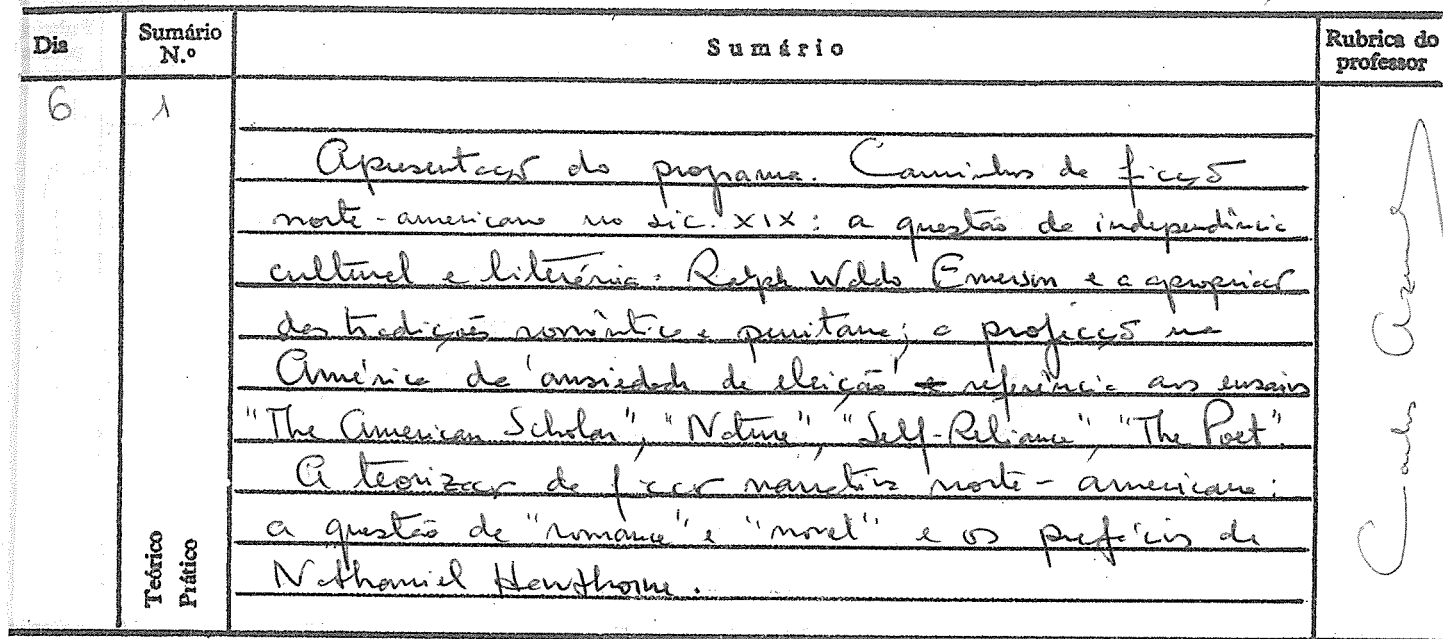 Dia
Sumário N.º
Sumário
Rubrica do professor
6
1
Apresentação do programa. Caminhos da ficção
norte-americana no séc. XIX: a questão da independência
cultural e literária: Ralph Waldo Emerson e a apropriação
das tradições romântica e puritana; a projecção na
América da 'ansiedade de eleição' referência aos ensaios
"The American Scholar", "Nature", "Self-Reliance", "The Poet".
A teorização da ficção narrativa norte-americana:
a questão de "romance" e "novel" e os prefácios de
Nathaniel Hawthorne.
Teórico
Prático
Carlos Azevedo